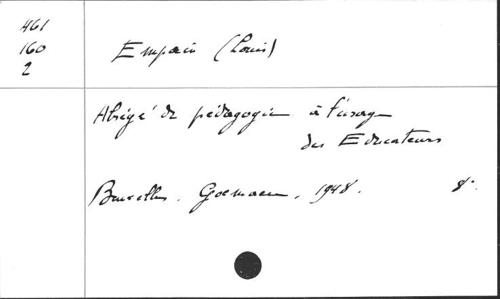 461
160
2
Empain (Louis)
Abrégé de pédagogie à l'usage
des Educateurs
Bruxelles. Goemaere, 1948. 8°.